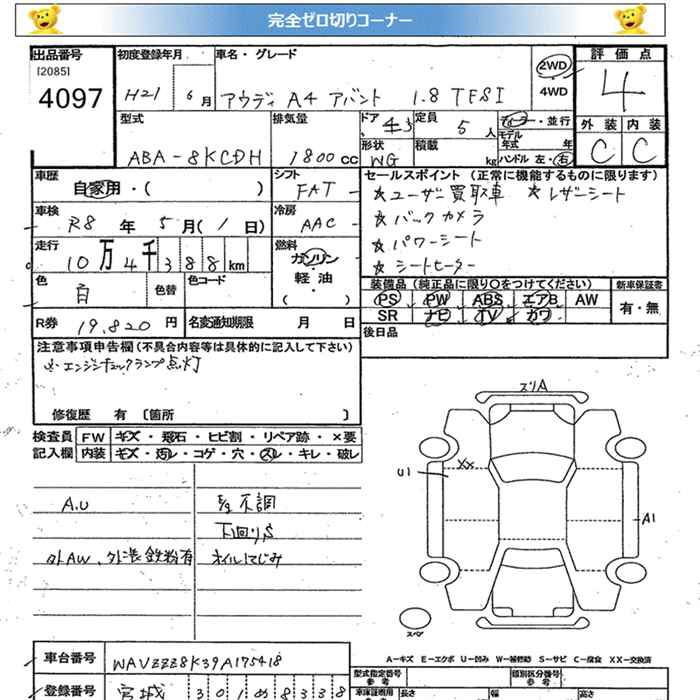 完全ゼロ切りコーナー
出品番号
[2085]
4097
初度登録年月
H21 6月
車名・グレード
アウディ A4 アバント 1.8 TFSI
2WD
4WD
評価点
4
外装 内装
C C
型式
ABA-8KCDH
排気量
1800cc
ドア
形状
WG
定員
5人
積載
kg
ディーラー・並行
モデル年式 年
ハンドル 左・右
車歴
自家用・( )
シフト
FAT
車検
R8年 5月(1日)
冷房
AAC
走行
10万4千388km
燃料
ガソリン・
軽油・
( )
色
白
色替
色コード
R券 19,820円
名変通知期限 月 日
セールスポイント (正常に機能するものに限ります)
☆ユーザー買取車 ☆レザーシート
☆バックカメラ
☆パワーシート
☆シートヒーター
装備品(純正品に限り○をつけてください)
新車保証書
PS PW ABS エアB AW
SR ナビ TV カワ
有・無
後日品
注意事項申告欄(不具合内容等は具体的に記入して下さい)
エンジンチェックランプ点灯
修復歴 有〔箇所 〕
検査員記入欄
FW キズ・飛石・ヒビ割・リペア跡・×要
内装 キズ・汚レ・コゲ・穴・スレ・キレ・破レ
A.U
不調
下回りS
外AW、外装鉄粉有
オイルにじみ
ズリA
XX
U1
A1
スペア
A-キズ E-エクボ U-凹み W-補修跡 S-サビ C-腐食 XX-交換済
車台番号
WAVZZZ8K39A175418
登録番号
宮城 301 め 8338
型式指定番号
参考
類別区分番号
参考
車庫証明用
長さ
幅
高さ